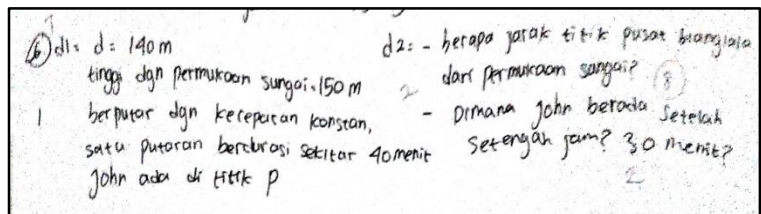 6 d1: d: 140 m
tinggi dgn permukaan sungai: 150 m
1 berputar dgn kecepatan konstan,
satu putaran berdurasi sekitar 40 menit
John ada di titik P
d2: - berapa jarak titik pusat bianglala
dari permukaan sungai?
2 8
- Dimana John berada setelah
setengah jam? 30 menit?
2